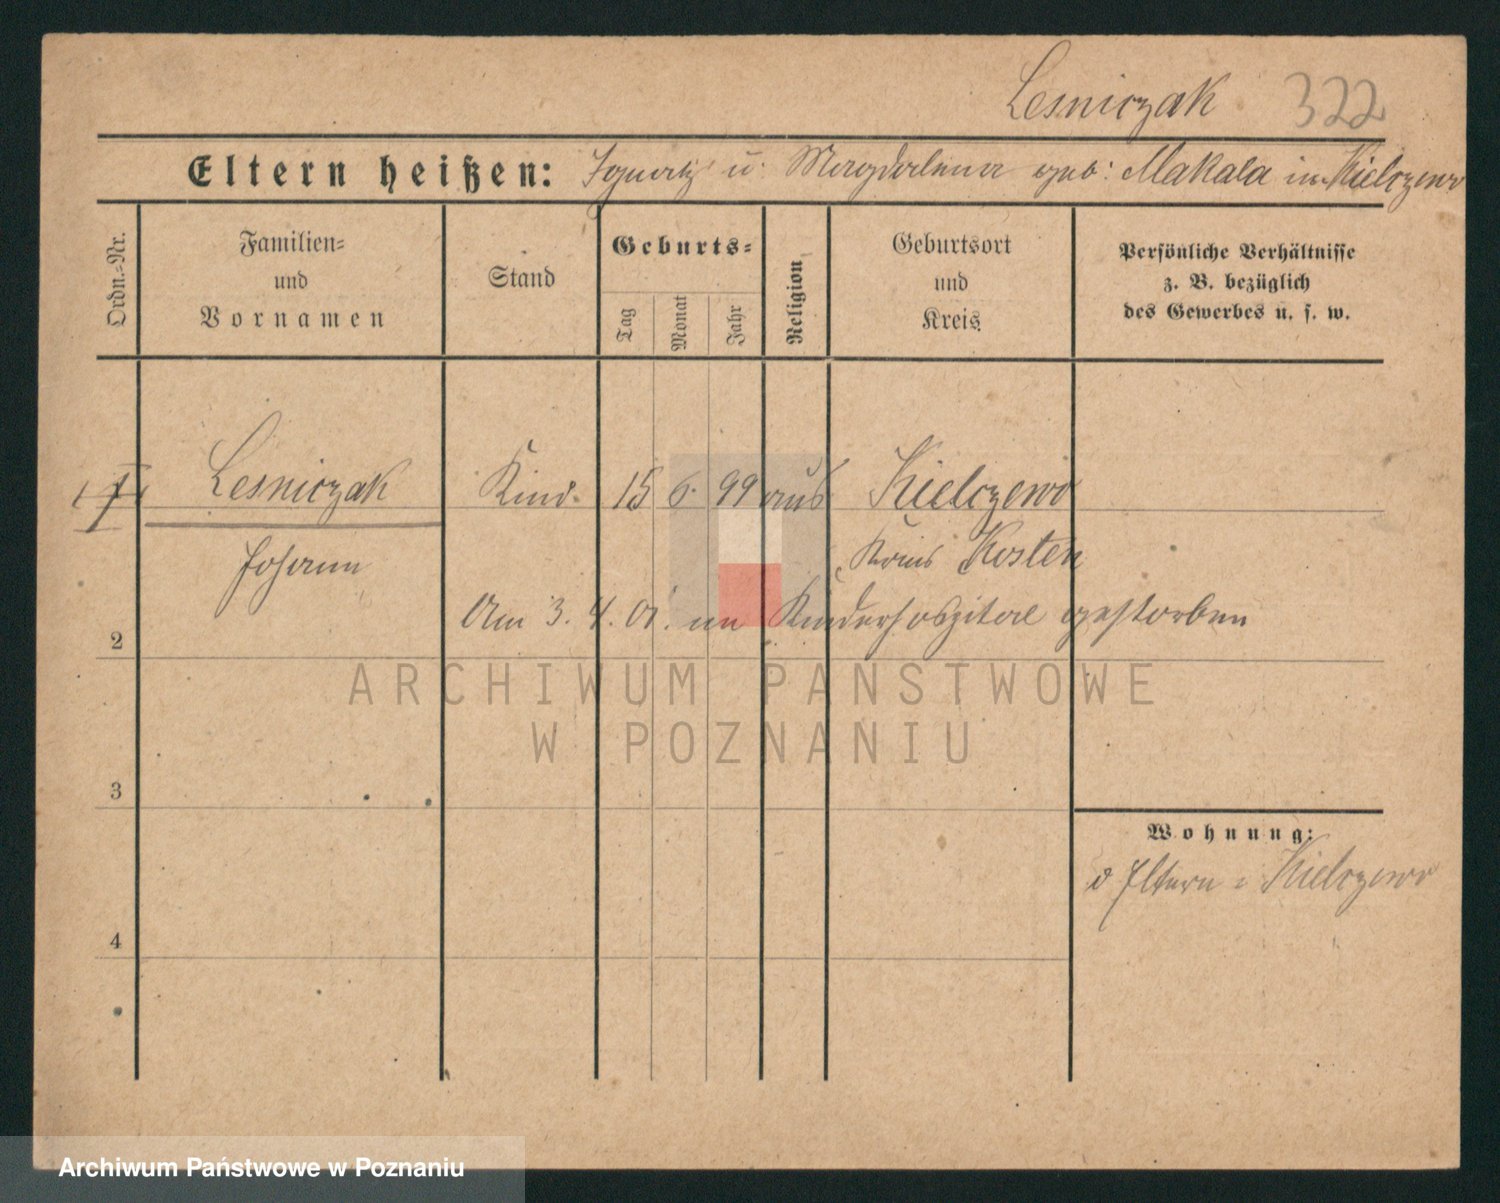 Lesniczak 322
Eltern heißen: Ignatz u. Magdalena geb: Makala in Kielczewo
Ordn.-Nr.
Familien-
und
Vornamen
Stand
Geburts-
Tag
Monat
Jahr
Religion
Geburtsort
und
Kreis
Persönliche Verhältnisse
z. B. bezüglich
des Gewerbes u. s. w.
Lesniczak Kind. 15 6. 99 aus Kielczewo
Johann Kreis Kosten
2 Am 3. 4. 01. im Kinderhospital gestorben
ARCHIWUM PAŃSTWOWE
W POZNANIU
3
Wohnung:
d Eltern i Kielczewo
4
Archiwum Państwowe w Poznaniu